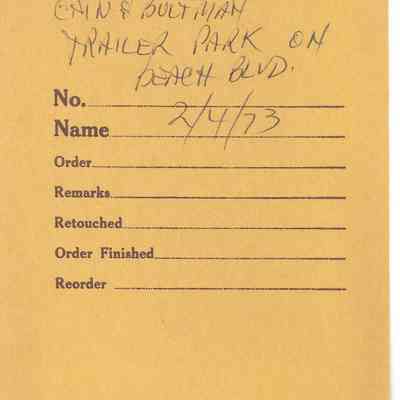 CAIN & BULTMAN
TRAILER PARK ON
BEACH BLVD.
No.
Name 2/4/73
Order
Remarks
Retouched
Order Finished
Reorder